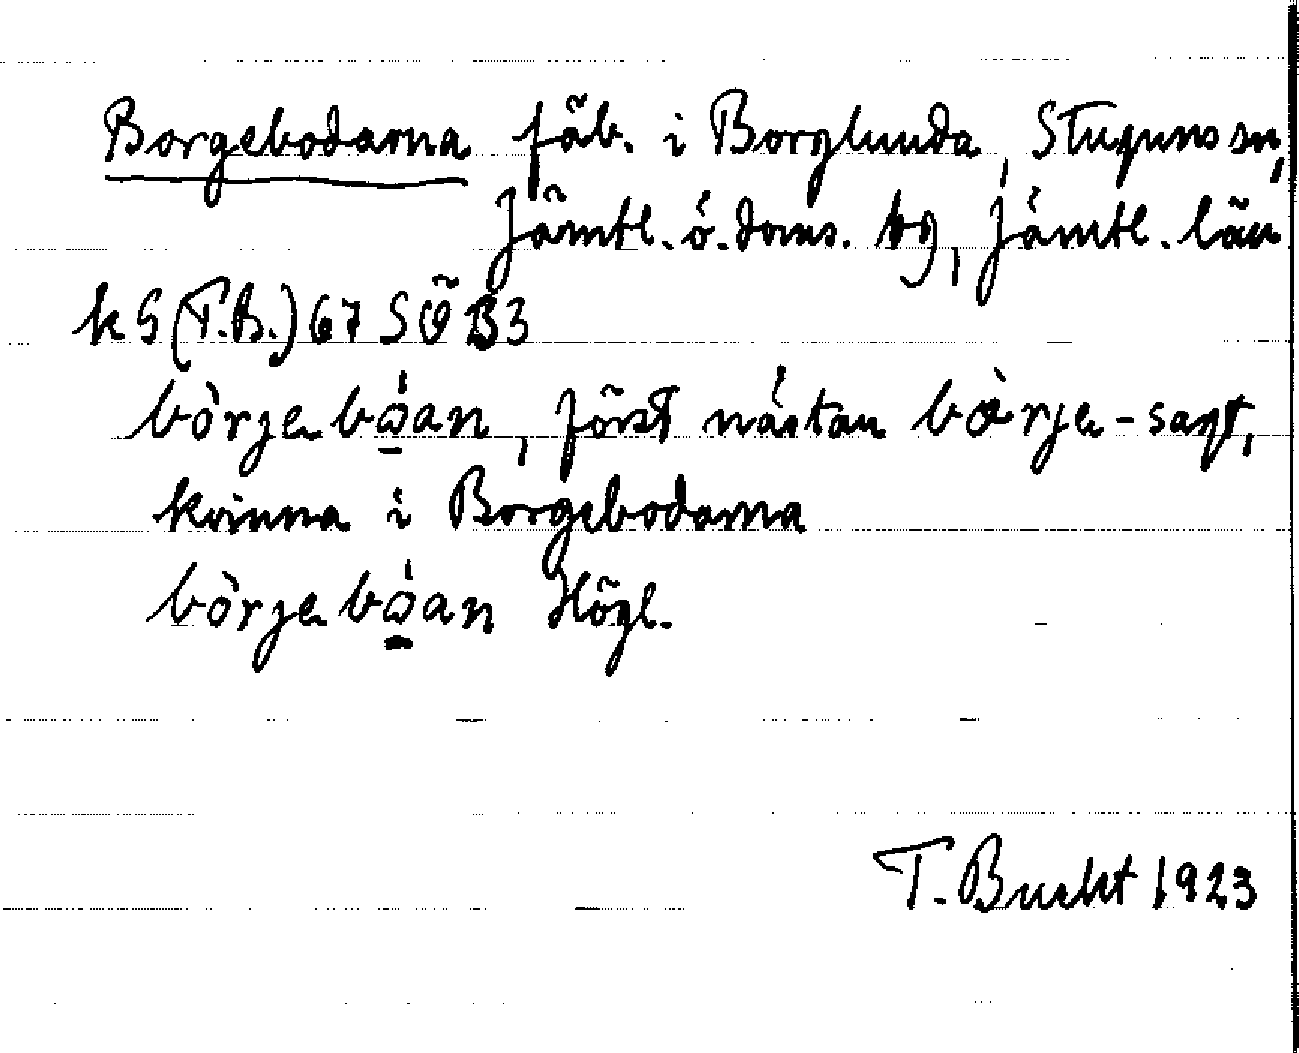 Borgebodarna fäb. i Borglunda, Stuguns sn,
Jämtl. ö. doms. tg, Jämtl. län
k G (T.B.) 67 SÖ B3
bòrjebώ̣an, först nästan bàrje- sagt,
kvinna i Borgebodarna
bòrjebώ̣an Högl.
T. Bucht 1923